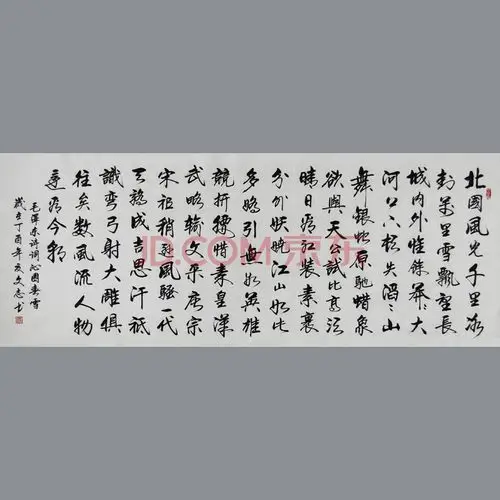 北國風光千里冰
封萬里雪飄望長
城內外惟餘莽〻大
河上下頓失滔〻山
舞銀蛇原馳蠟象
欲與天公試比高須
晴日看紅裝素裹
分外妖嬈江山如此
多嬌引無數英雄
競折腰惜秦皇漢
武略輸文采唐宗
宋祖稍遜風騷一代
天驕成吉思汗祇
識彎弓射大雕俱
往矣數風流人物
還看今朝
毛澤東詩詞沁園春雪
歲在丁酉年文志書
JD.COM 京东